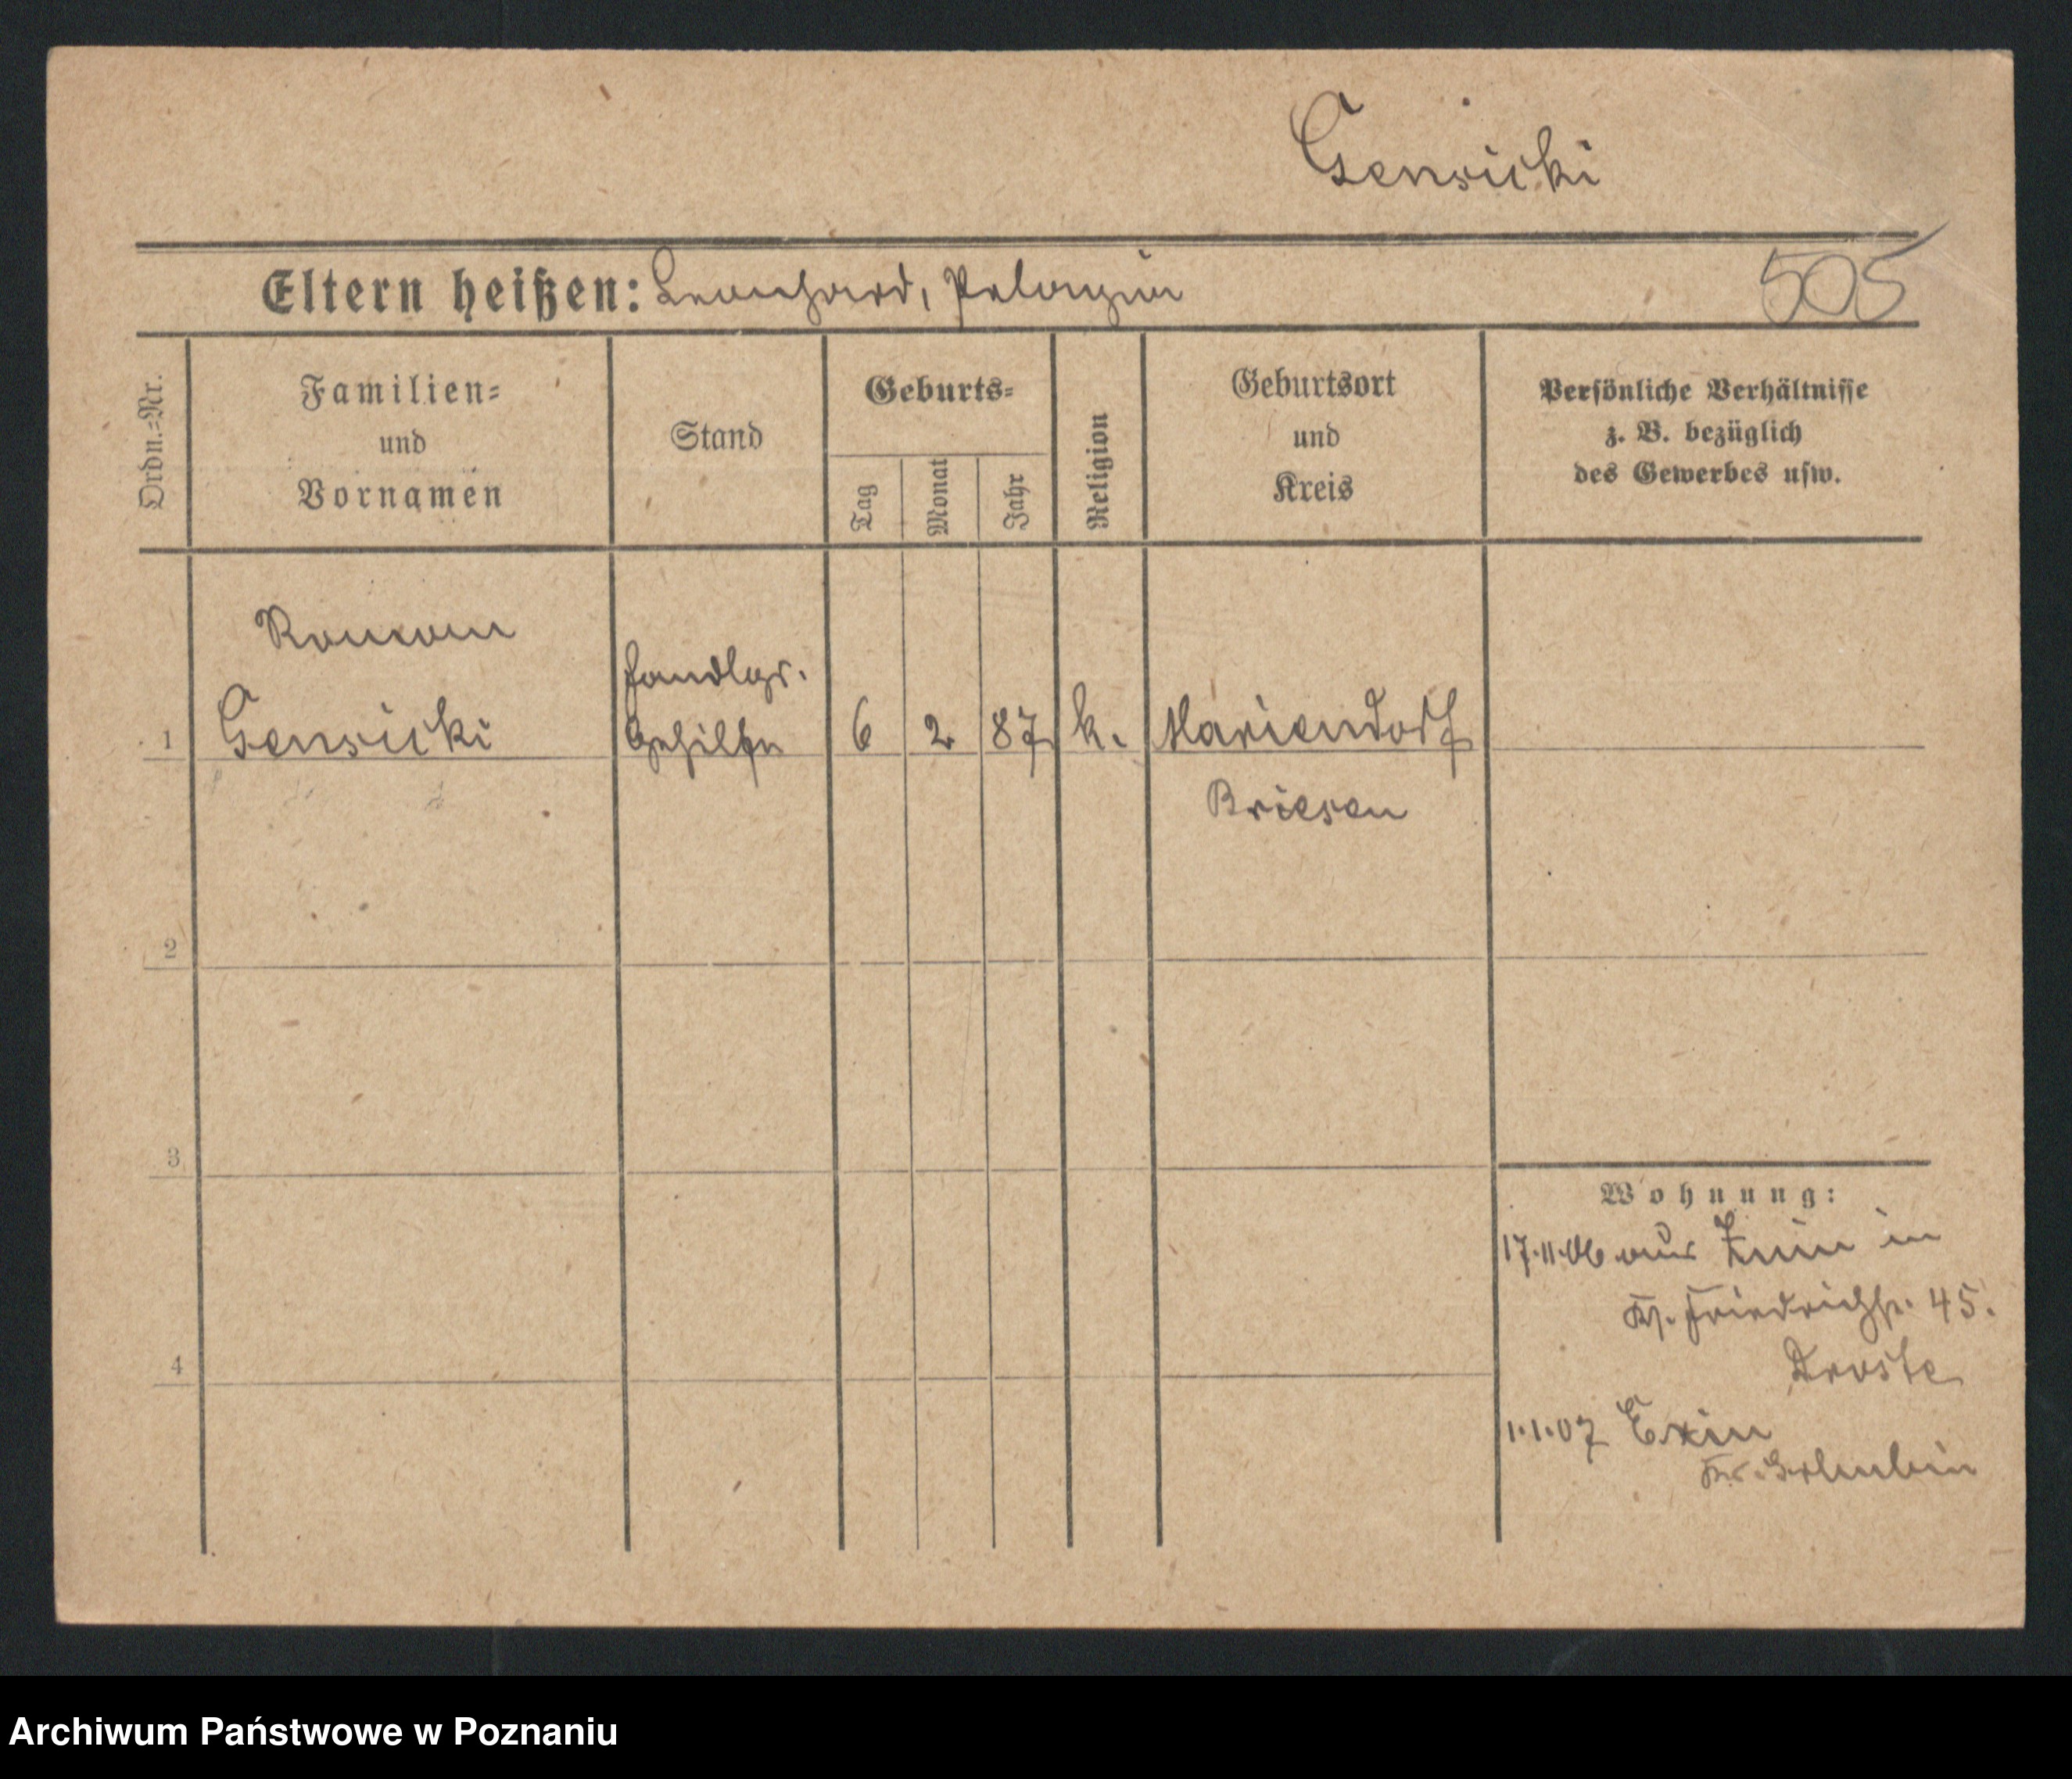 Gensicki
Eltern heißen: Leonhard, Pelagia
505
Ordn.=Nr.
Familien=
und
Vornamen
Stand
Geburts=
Tag
Monat
Jahr
Religion
Geburtsort
und
Kreis
Persönliche Verhältnisse
z. B. bezüglich
des Gewerbes usw.
Roman
Handlgs.
1 Gensicki Gehilfe 6 2 87 k. Mariendorf
Briesen
2
3
Wohnung:
17.11.06 aus Znin in
Friedrichstr. 45.
4
Droste
1.1.07 Exin
Archiwum Państwowe w Poznaniu